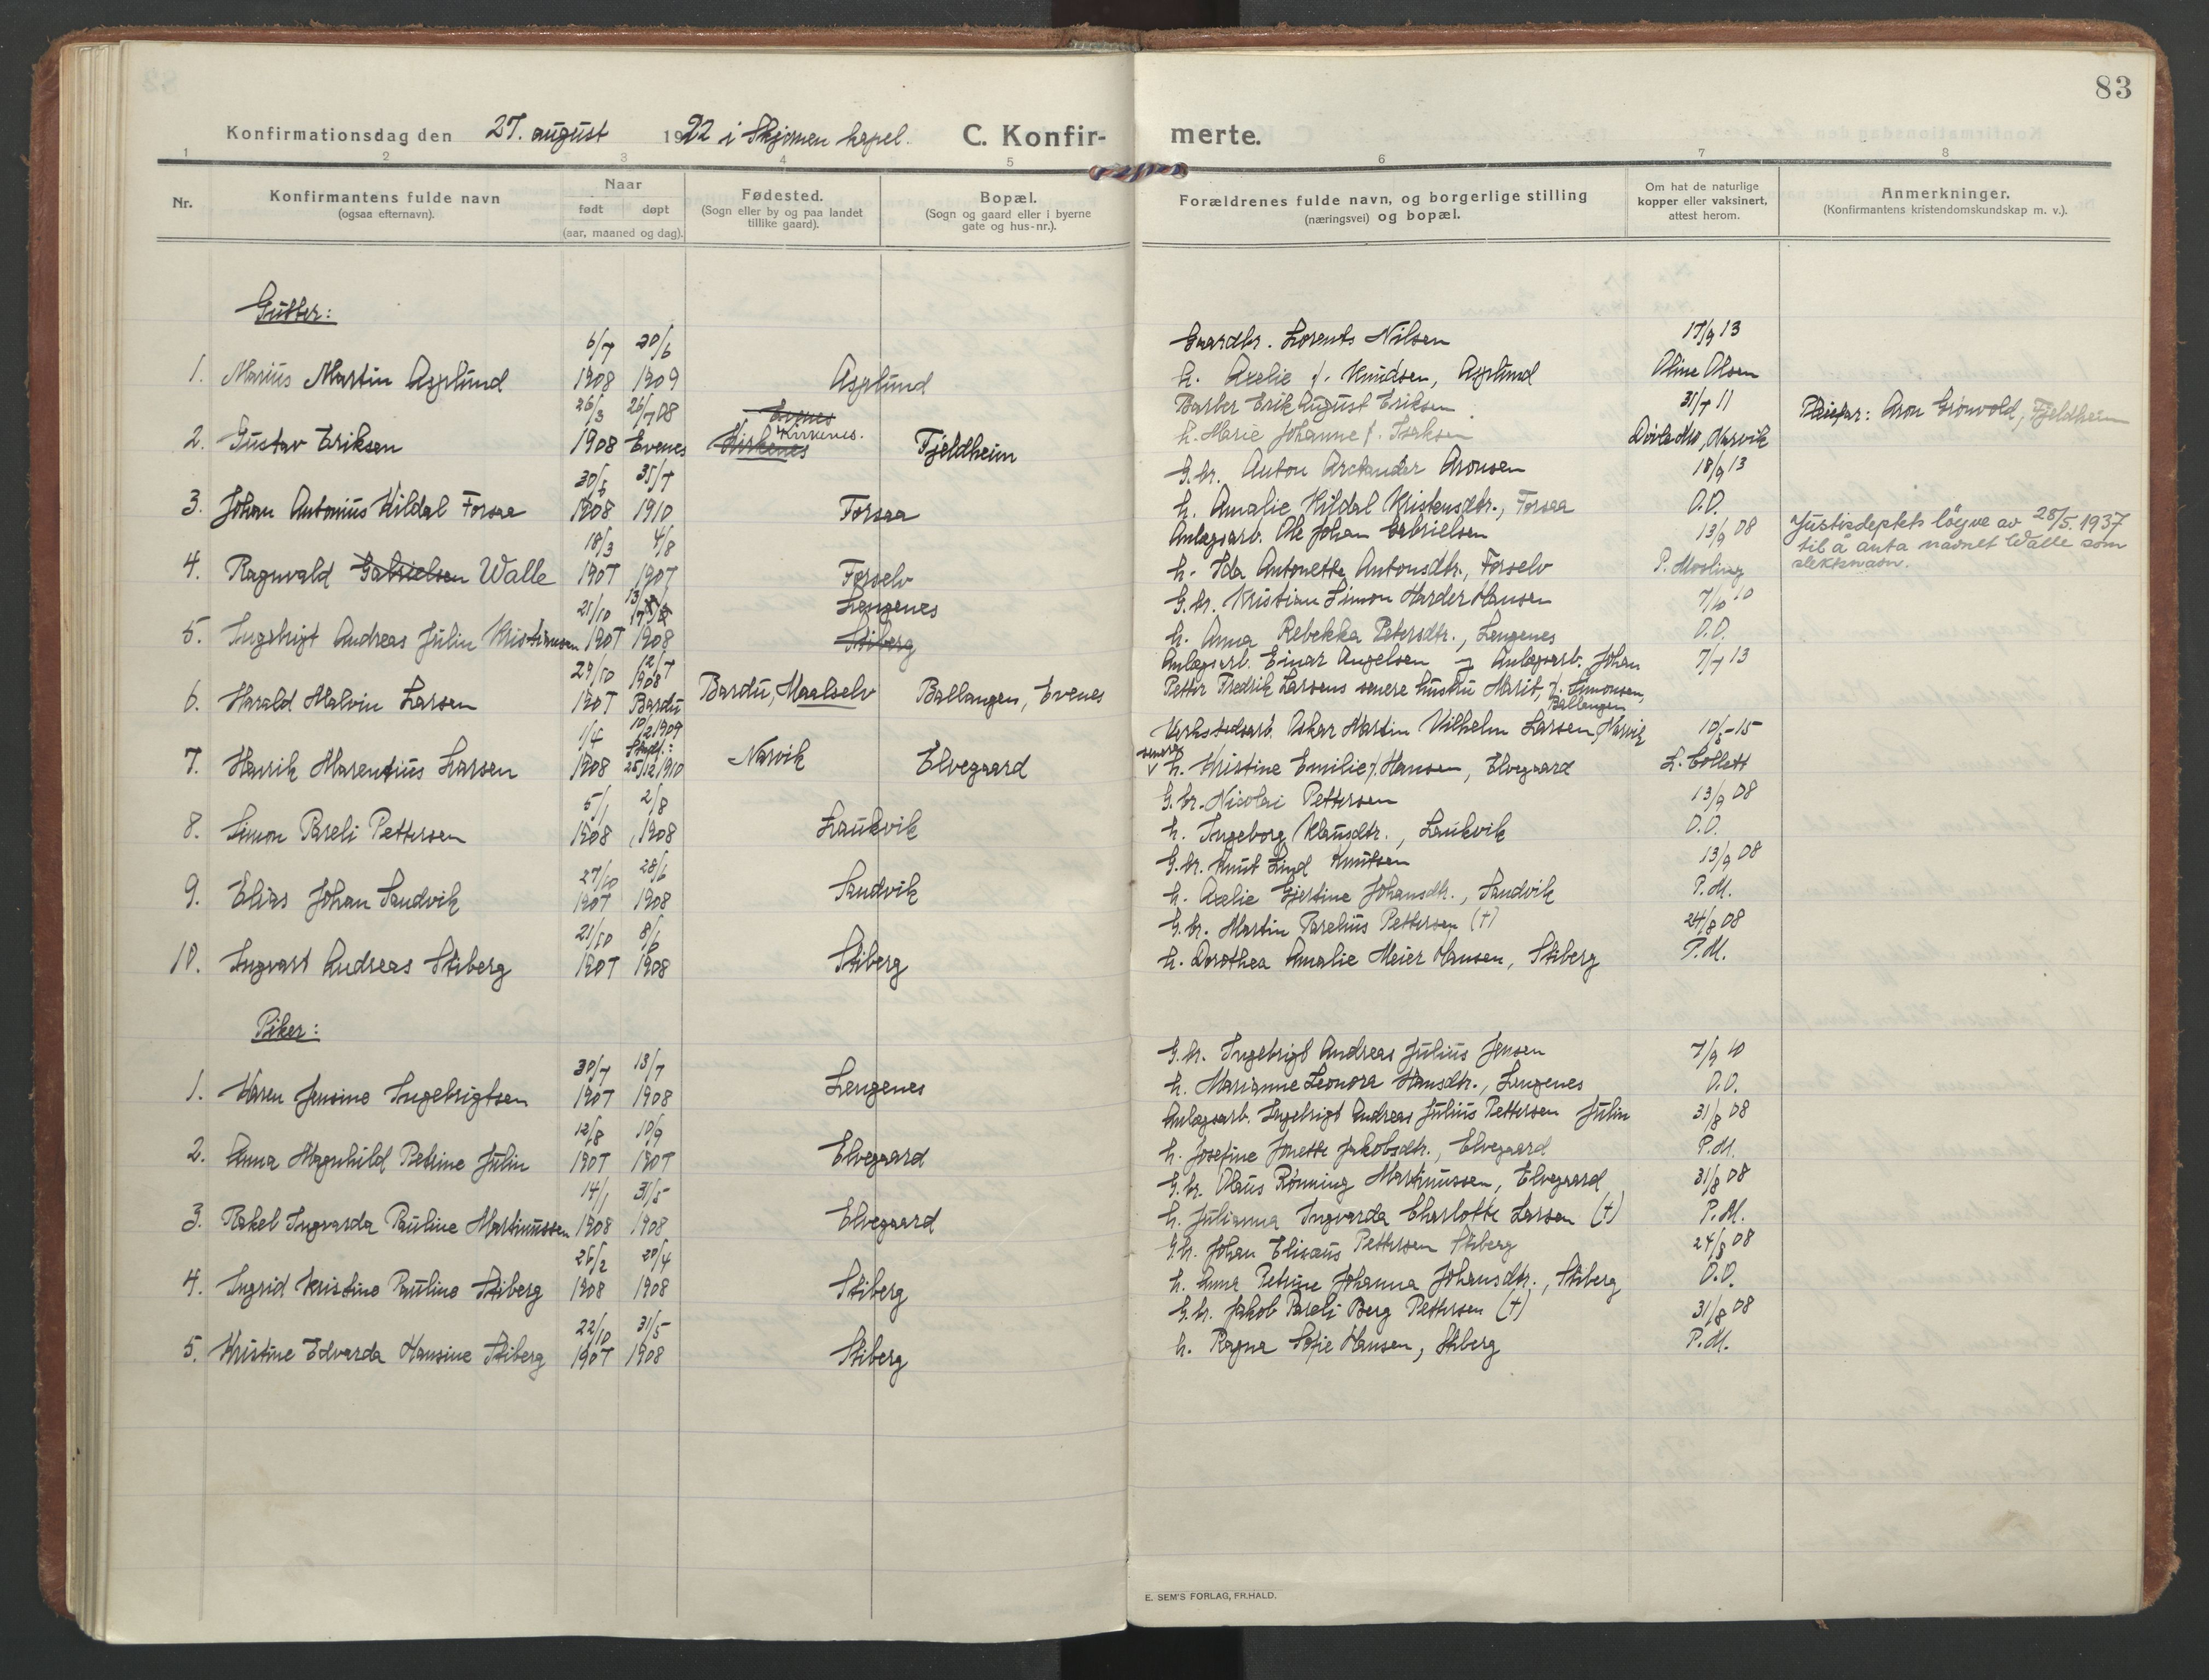 83
Konfirmationsdag den 27. august 1922 i Skjomen kapel. C. Konfir-merte.
1 2 3 4 5 6 7 8
Nr.
Konfirmantens fulde navn
(ogsaa efternavn).
Naar
født døpt
(aar, maaned og dag).
Fødested.
(Sogn eller by og paa landet
tillike gaard).
Bopæl.
(Sogn og gaard eller i byerne
gate og hus-nr.).
Forældrenes fulde navn, og borgerlige stilling
(næringsvei) og bopæl.
Om hat de naturlige
kopper eller vaksinert,
attest herom.
Anmerkninger.
(Konfirmantens kristendomskundskap m. v.).
Gutter:
6/7 20/6 Gaardbr. Lorents Nilsen 17/9 13
1. Marius Martin Asplund 1908 1909 Asplund h. Axelie f. Knudsen, Asplund Oline Olsen
26/3 26/7 08 Evenes Barber Erik August Eriksen 31/7 11
2. Gustav Eriksen 1908 Evenes Kirkenes Kirkenes. Fjeldheim h. Marie Johanne f. Isaksen Narvik Pleiefar: Aron Grönvold, Fjeldheim
30/5 1908 1910 G.br. Anton Arctander Aronsen 18/9 13
3. Johan Antonius Kildal Forsaa Forsaa h. Amalie Kildal Kristensdtr., Forsaa O.O.
18/3 4/8 Anlægsarb. Ole Johan Gabrielsen 13/9 08 Justisdeptets löyve av 28/5. 1937
til å anta navnet Walle som
slektsnavn.
4. Ragnvald Gabrielsen Walle 1907 1907 Forselv h. Ida Antonette Antonsdtr., Forselv P. Mosling
21/10 Lengenes G.br. Kristian Simon Harder Hansen 7/10 10
5. Ingebrigt Andreas Julin Kristiansen 1907 1908 Stiberg h. Anna Rebekka Petersdtr., Lengenes O.O.
29/10 12/7 1908 Anlægsarb. Einar Angelsen Anlægsarb. Johan 7/7 13
6. Harald Malvin Larsen 1907 Bardu Bardu, Maalselv Ballangen, Evenes Petter Fredrik Larsens senere hustru Marit, f. Simonsen,
Ballangen
1/4 10/2 1909 Verkstedsarb. Oskar Martin Vilhelm Larsen, Narvik 10/6-15
7. Henrik Marentius Larsen 1908 25/12 1910 Narvik Elvegaard senere h. Kristine Emilie f. Hansen, Elvegaard L. Collett
5/1 2/8 G.br. Nicolai Pettersen 13/9 08
8. Simon Pareli Pettersen 1908 1908 Laukvik h. Ingeborg Klausdtr., Laukvik O.O.
27/10 28/6 G.br. Knut Lind Knutsen 13/9 08
9. Elias Johan Sandvik 1907 1908 Sandvik h. Axelie Gjertine Johansdtr., Sandvik P.M.
21/10 8/6 G.br. Martin Parelius Pettersen (†) 24/8 08
10. Ingvart Andreas Stiberg 1907 1908 Stiberg h. Dorothea Amalie Meier Hansen, Stiberg P.M.
Piker:
30/7 13/7 G.br. Ingebrigt Andreas Julius Jensen 7/9 10
1. Karen Jensine Ingebrigtsen 1907 1908 Lengenes h. Marianne Leonora Hansdtr., Lengenes O.O.
12/8 10/9 Anlægsarb. Ingebrigt Andreas Julius Pettersen Julin 31/8 08
2. Anna Magnhild Petrine Julin 1907 1907 Elvegaard h. Josefine Jonette Jakobsdtr., Elvegaard P.M.
14/1 31/5 G.br. Olaus Rønning Martinussen, Elvegaard 31/8 08
3. Rakel Ingvarda Pauline Martinussen 1908 1908 Elvegaard h. Julianna Ingvarda Charlotte Larsen (†) P.M.
26/2 20/4 G.br. Johan Elisæus Pettersen Stiberg 24/8 08
4. Ingrid Kristine Pauline Stiberg 1908 1908 Stiberg h. Anna Petrine Johanna Johansdtr., Stiberg O.O.
22/10 31/5 G.br. Jakob Pareli Berg Pettersen (†) 31/8 08
5. Kristine Edvarda Hansine Stiberg 1907 1908 Stiberg h. Ragna Sofie Hansen, Stiberg P.M.
E. SEM'S FORLAG, FR.HALD.